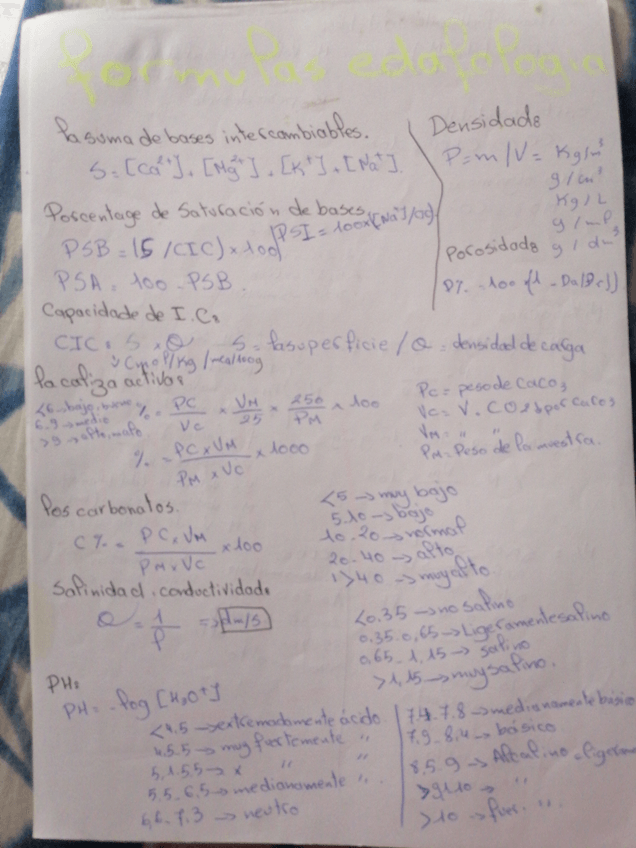 formulas edafologia
la suma de bases intercambiables.
S = [Ca2+] + [Mg2+] + [K+] + [Na+].
Porcentage de Saturación de bases
PSB = (S / CIC) x 100
PSI = 100x[Na+]/CIC)
PSA = 100 - PSB.
Densidad:
P = m / V = Kg/m3
g / cm3
Kg / L
g / ml
g / dm3
Porosidad:
P% = 100 (1 - Da/Dr))
Capacidade de I.C:
CIC = S x Q S = la superficie / Q = densidad de carga
Cmol/Kg / meq/100g
la caliza activa:
<6 → bajo, bueno
6.9 → medio
>9 → alto, malo
% = PC/VC x VM/25 x 250/PM x 100
% = PC x VM / PM x VC x 1000
PC = peso de CaCO3
VC = V. CO2 por CaCO3
VM = " "
PM = Peso de la muestra.
los carbonatos.
C% = PC x VM / PM x VC x 100
<5 → muy bajo
5.10 → bajo
10.20 → normal
20.40 → alto
>40 → muy alto.
Salinidad. conductividad:
Q = 1/P => dm/S
<0,35 → no salino
0,35.0,65 → Ligeramente salino
0,65.1,15 → salino
>1,15 → muy salino.
PH:
PH = -log [H3O+]
<4.5 → extremadamente ácido
4,5.5 → muy fuertemente "
5,1.5.5 → x " "
5,5.6,5 → medianamente ".
6,6.7.3 → neutro
7.4.7.8 → medianamente básico
7.9.8.4 → básico
8,5.9 → Alcalino
>9.1.10 → "
>10 → fuer. ".